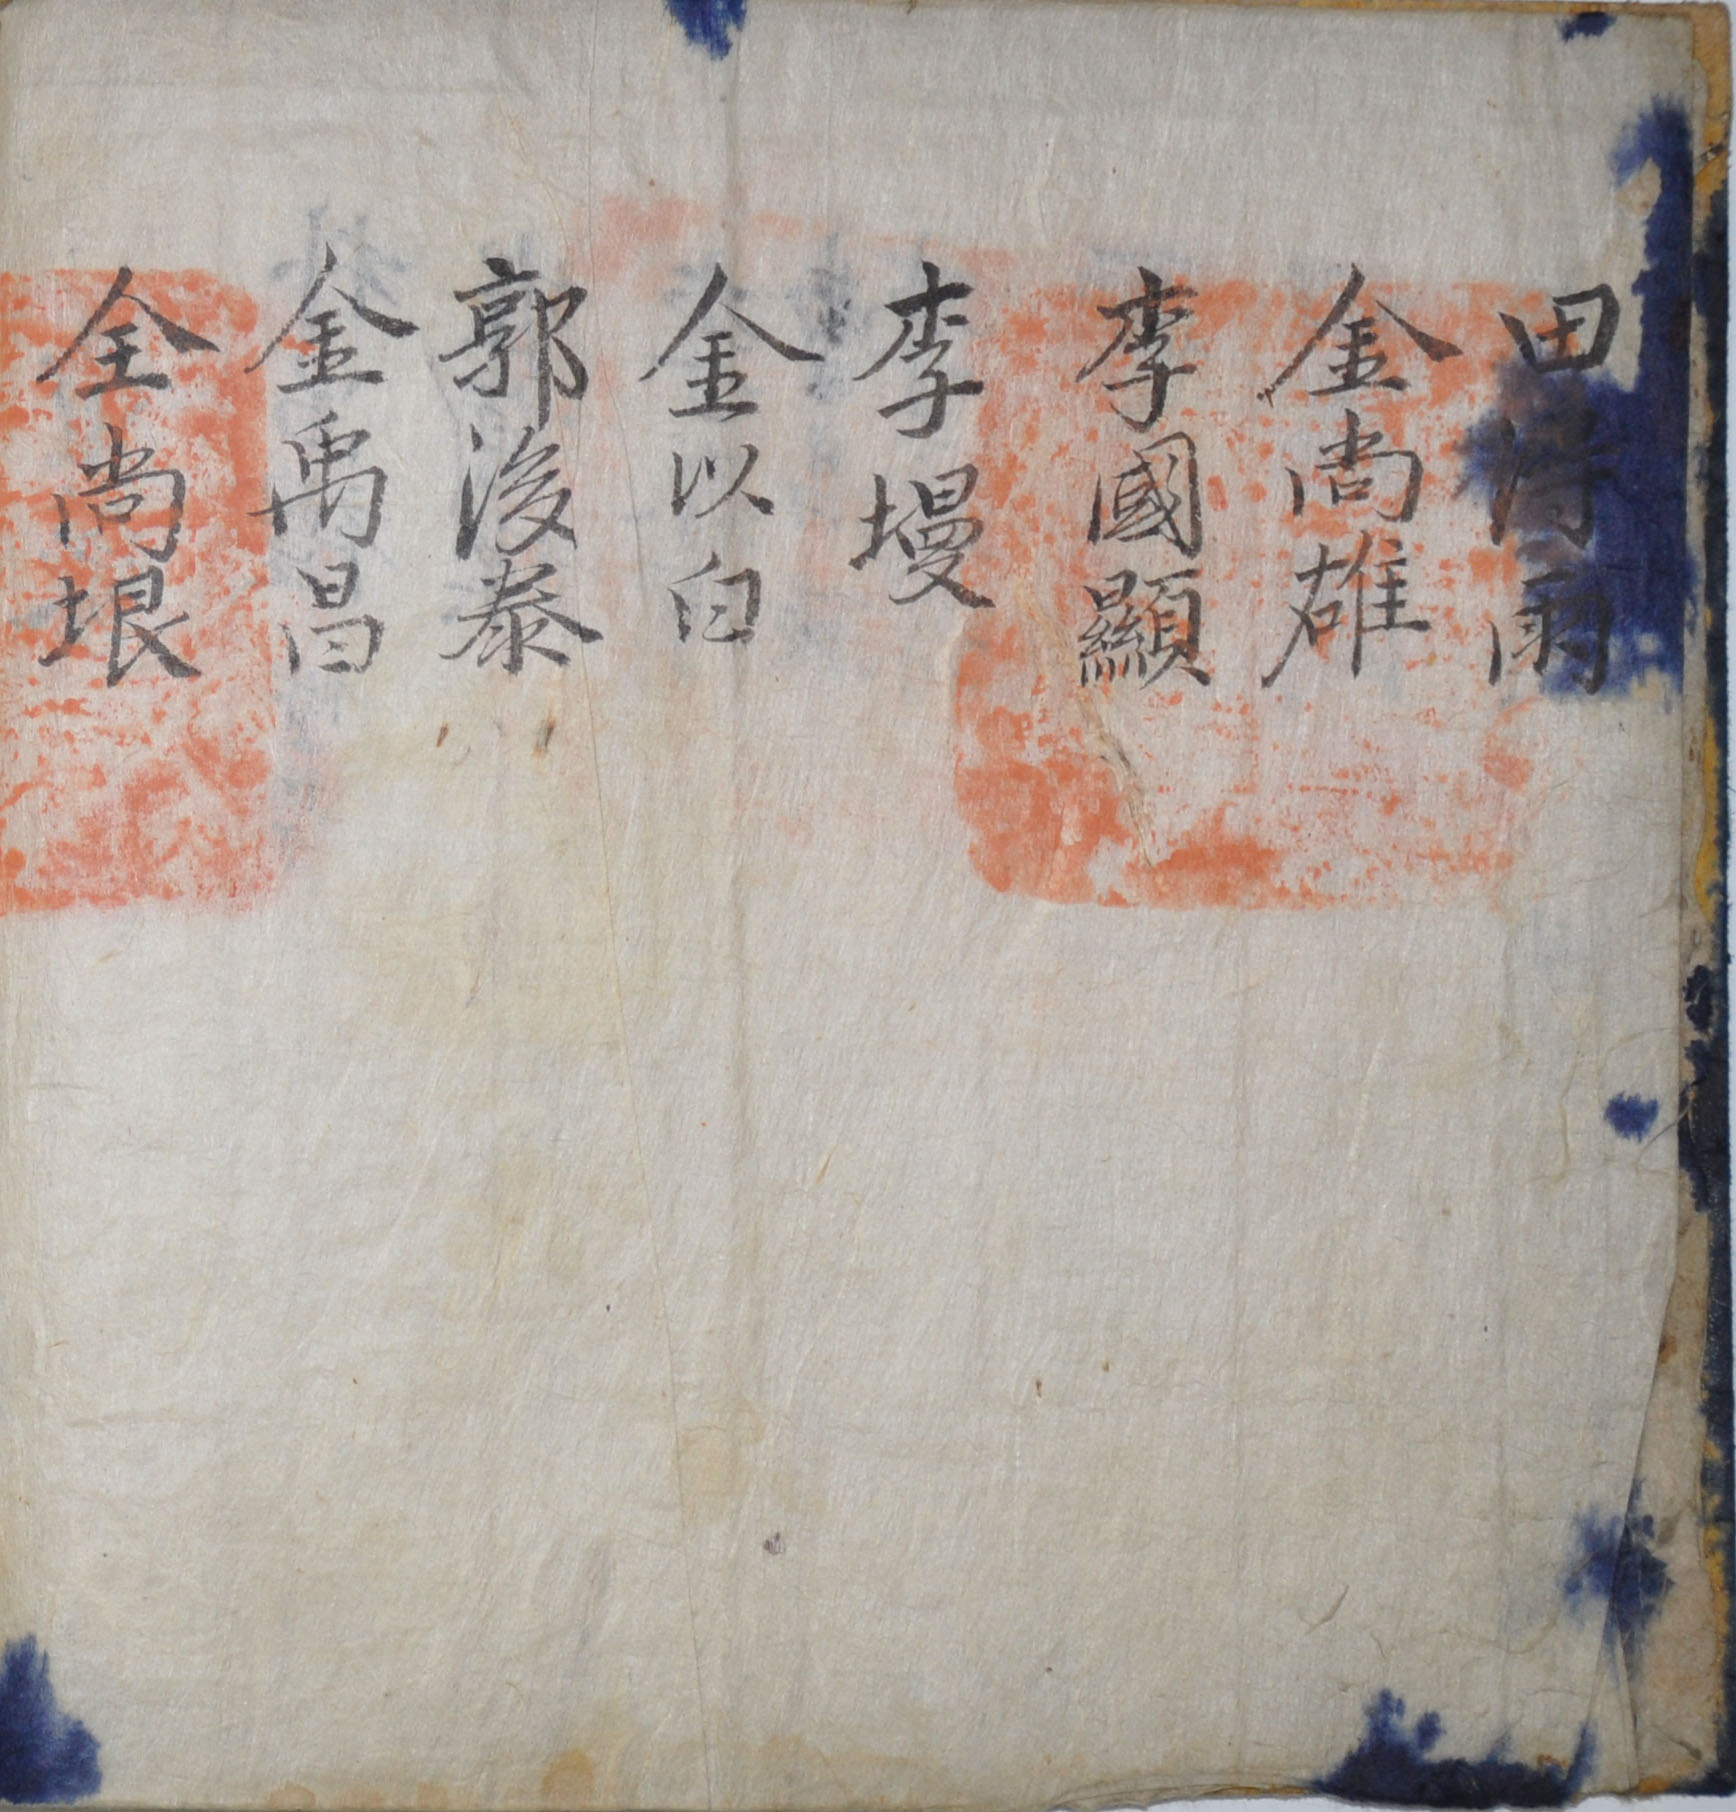 田得雨
金尚雄
李國顯
李墁
金以白
郭浚泰
金禹昌
全尚垠